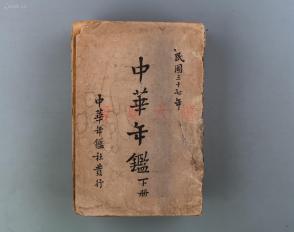 民國三十七年
中華年鑑
下册
中華年鑑社發行